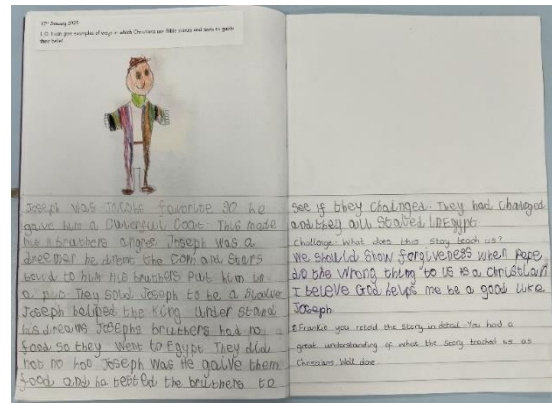 17th January 2024
L.O. I can give examples of ways in which Christians use Bible stories and texts to guide
their belief
Joseph was Jacobs favorine so he
gave him a cluverful coat. This made
his 11 bruthers angree Joseph was a
dreemer he dremt the corn and Stars
bowd to him his bruthers Put him in
a pit. They sold Joseph to be a Slavve
Joseph helped the King under stand
his dreams Josephs bruthers had no
food so they went to Egypt They did
not no hoo Joseph was He gaive them
food and he tested the bruthers to
see if they chainged. They had changed
and they all stayed in Egypt.
Challenge: What does this story teach us?
We should show forgiveness when Pepe
do the wrong thing to us as a christian
I beleve God helps me be a good like
Joseph
Frankie you retold the story in detail. You had a
great understanding of what the story teached us as
Christians. Well done